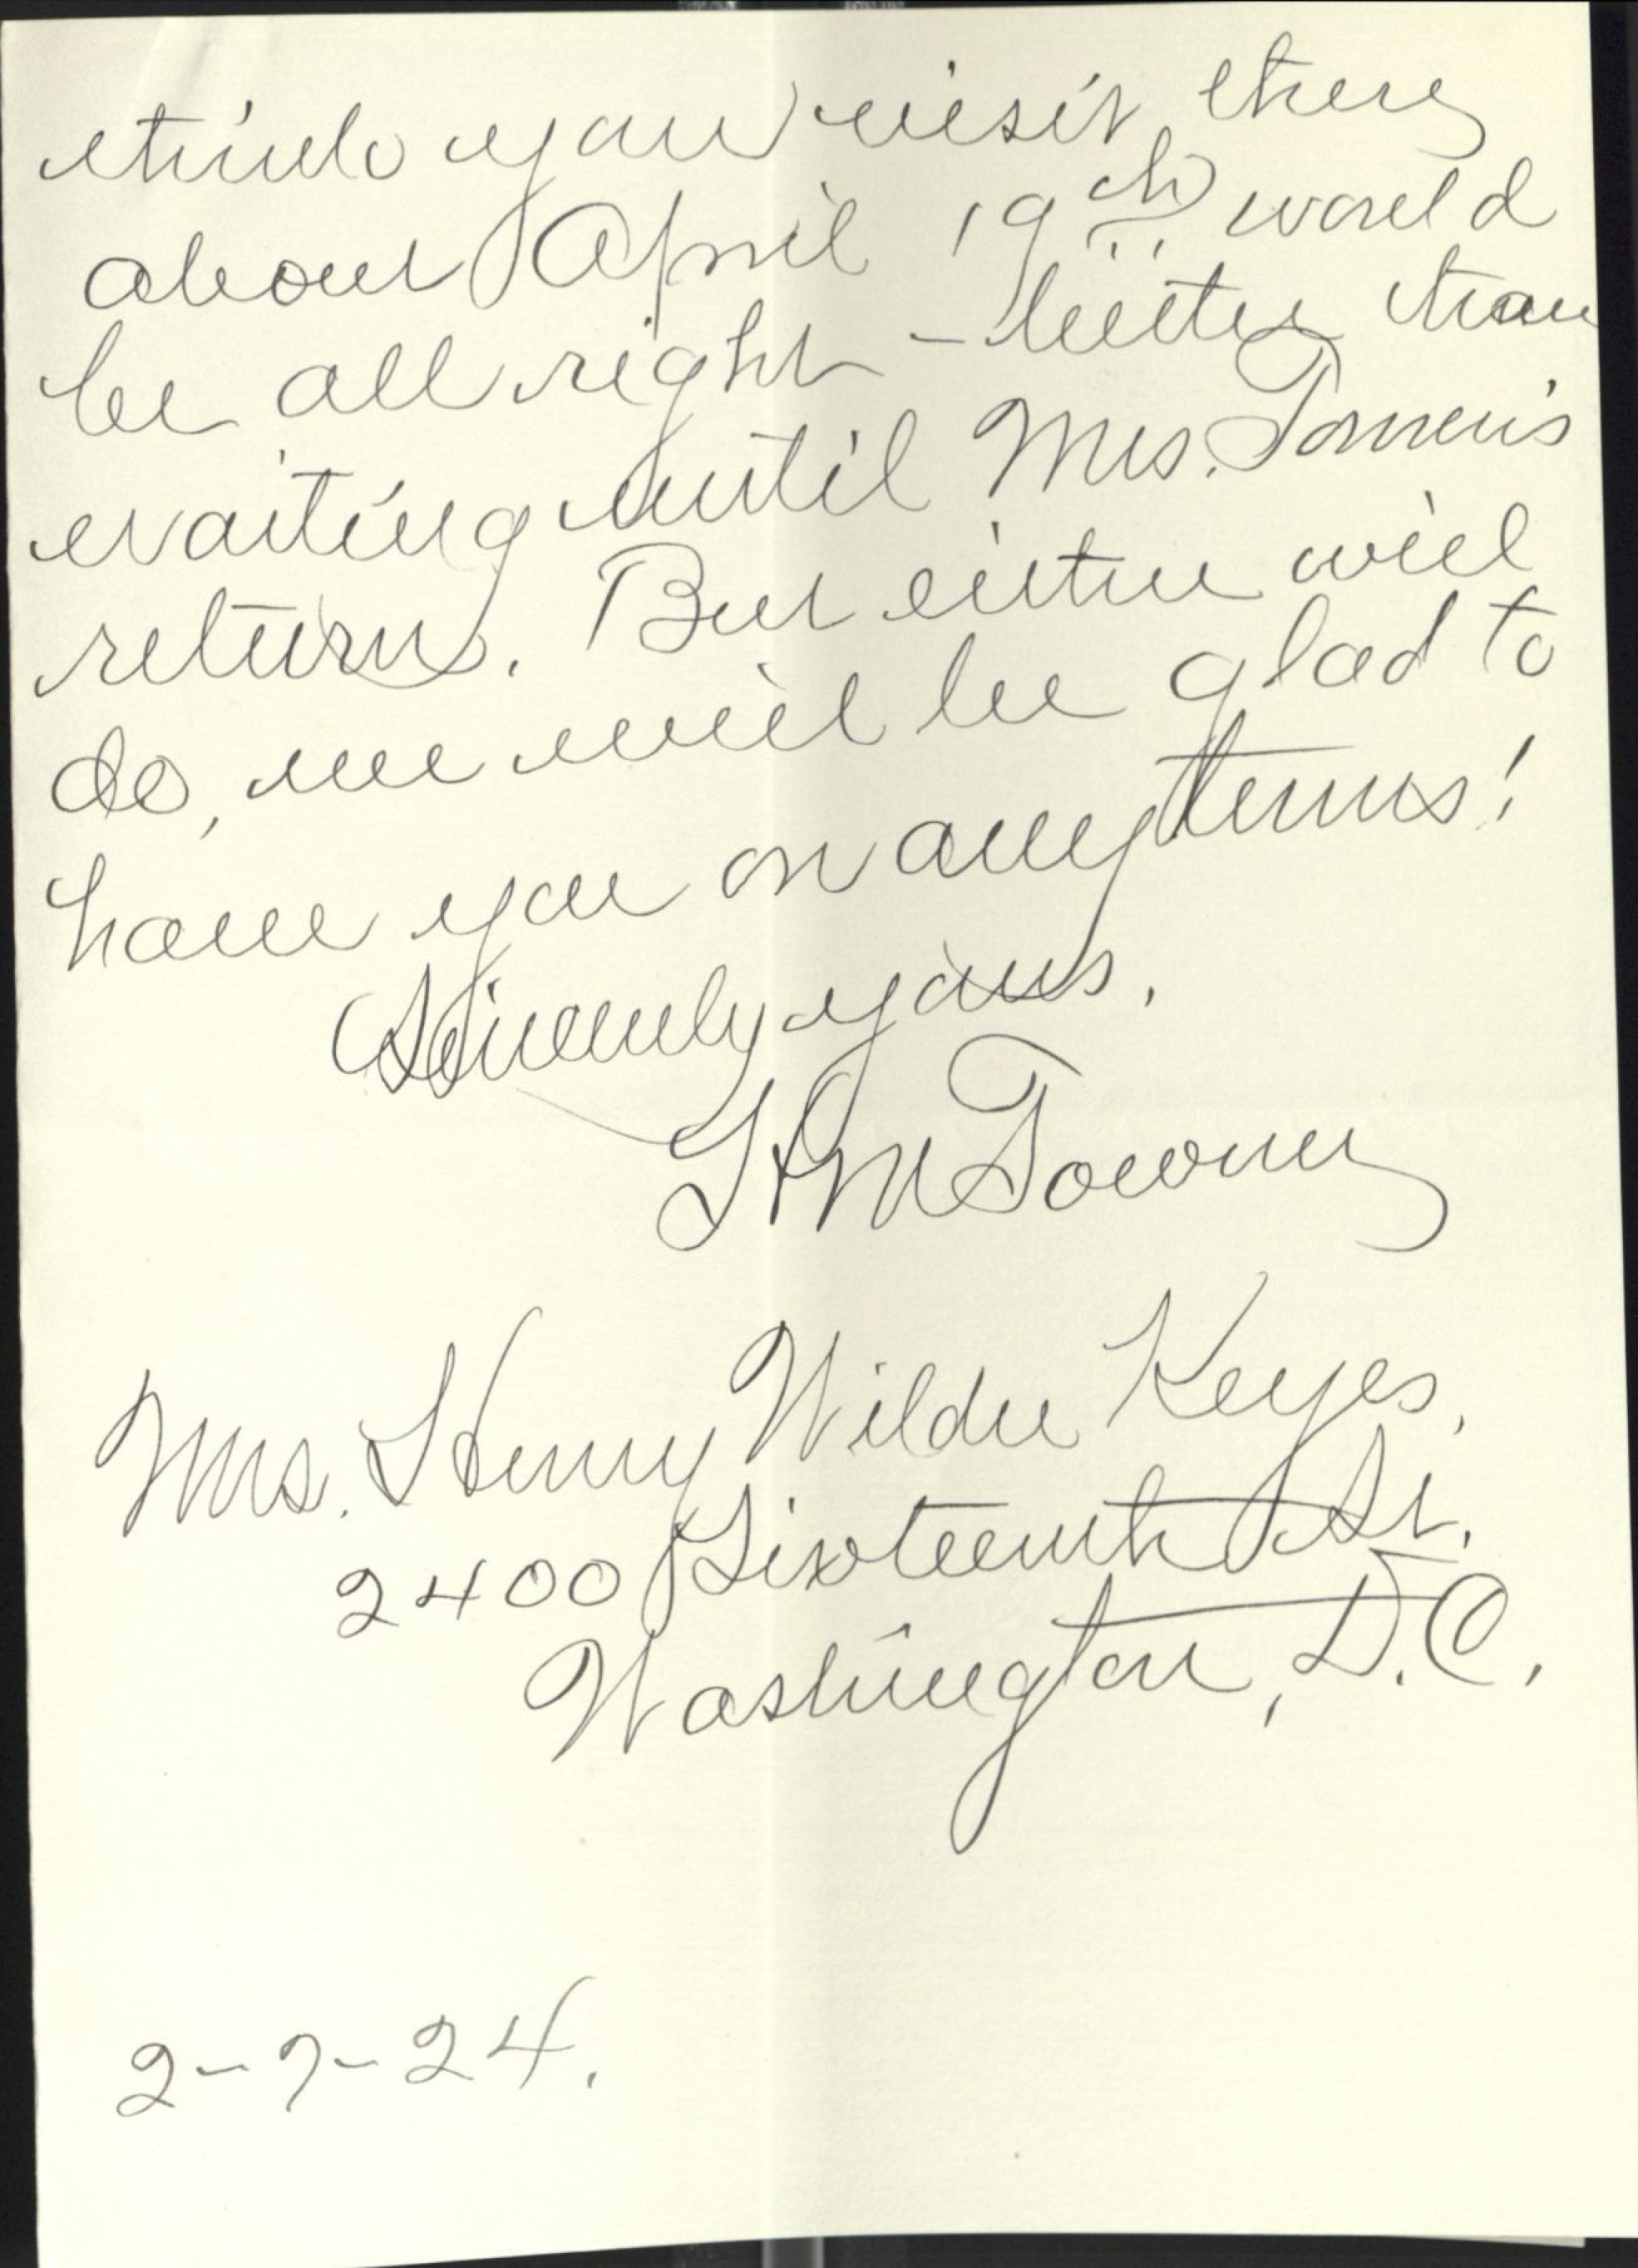 think your visit there
about April 19th would
be all right - better than
waiting until Mrs.
return. But either will
do, we will be glad to
have you on any terms!
Sincerely yours,
Towner
Mrs. Henry Wilder Keyes,
2400 Sixteenth St.
Washington, D.C.
2-7-24.